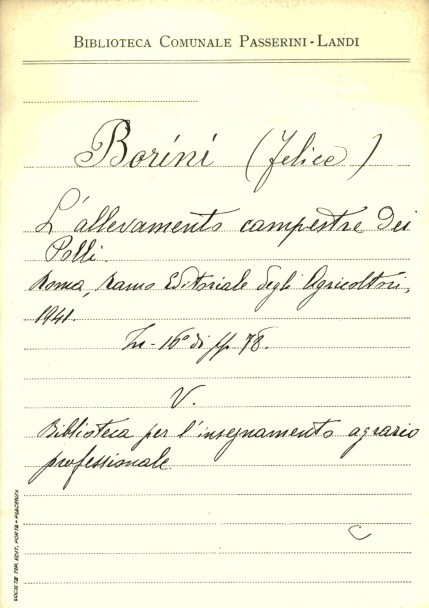 BIBLIOTECA COMUNALE PASSERINI-LANDI
Borini (Felice)
L'allevamento campestre dei
Polli.
Roma, Ramo Editoriale degli Agricoltori,
1941.
In-16° di pp. 78.
V.
Biblioteca per l'insegnamento agrario
professionale.
C
SOCIETÀ TIP. EDIT. PORTA - PIACENZA